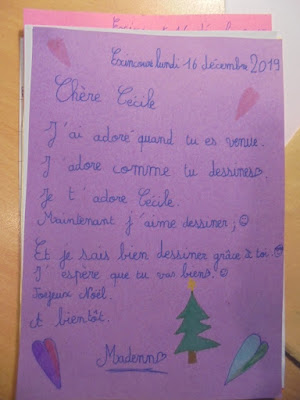 lundi 16 décembre 2019
Chère Cécile
J'ai adoré quand tu es venue.
J'adore comme tu dessines.
Je t'adore Cécile.
Maintenant j'aime dessiner ;
Et je sais bien dessiner grâce à toi.
J'espère que tu vas bien.
Joyeux Noël.
A bientôt.
Madenn